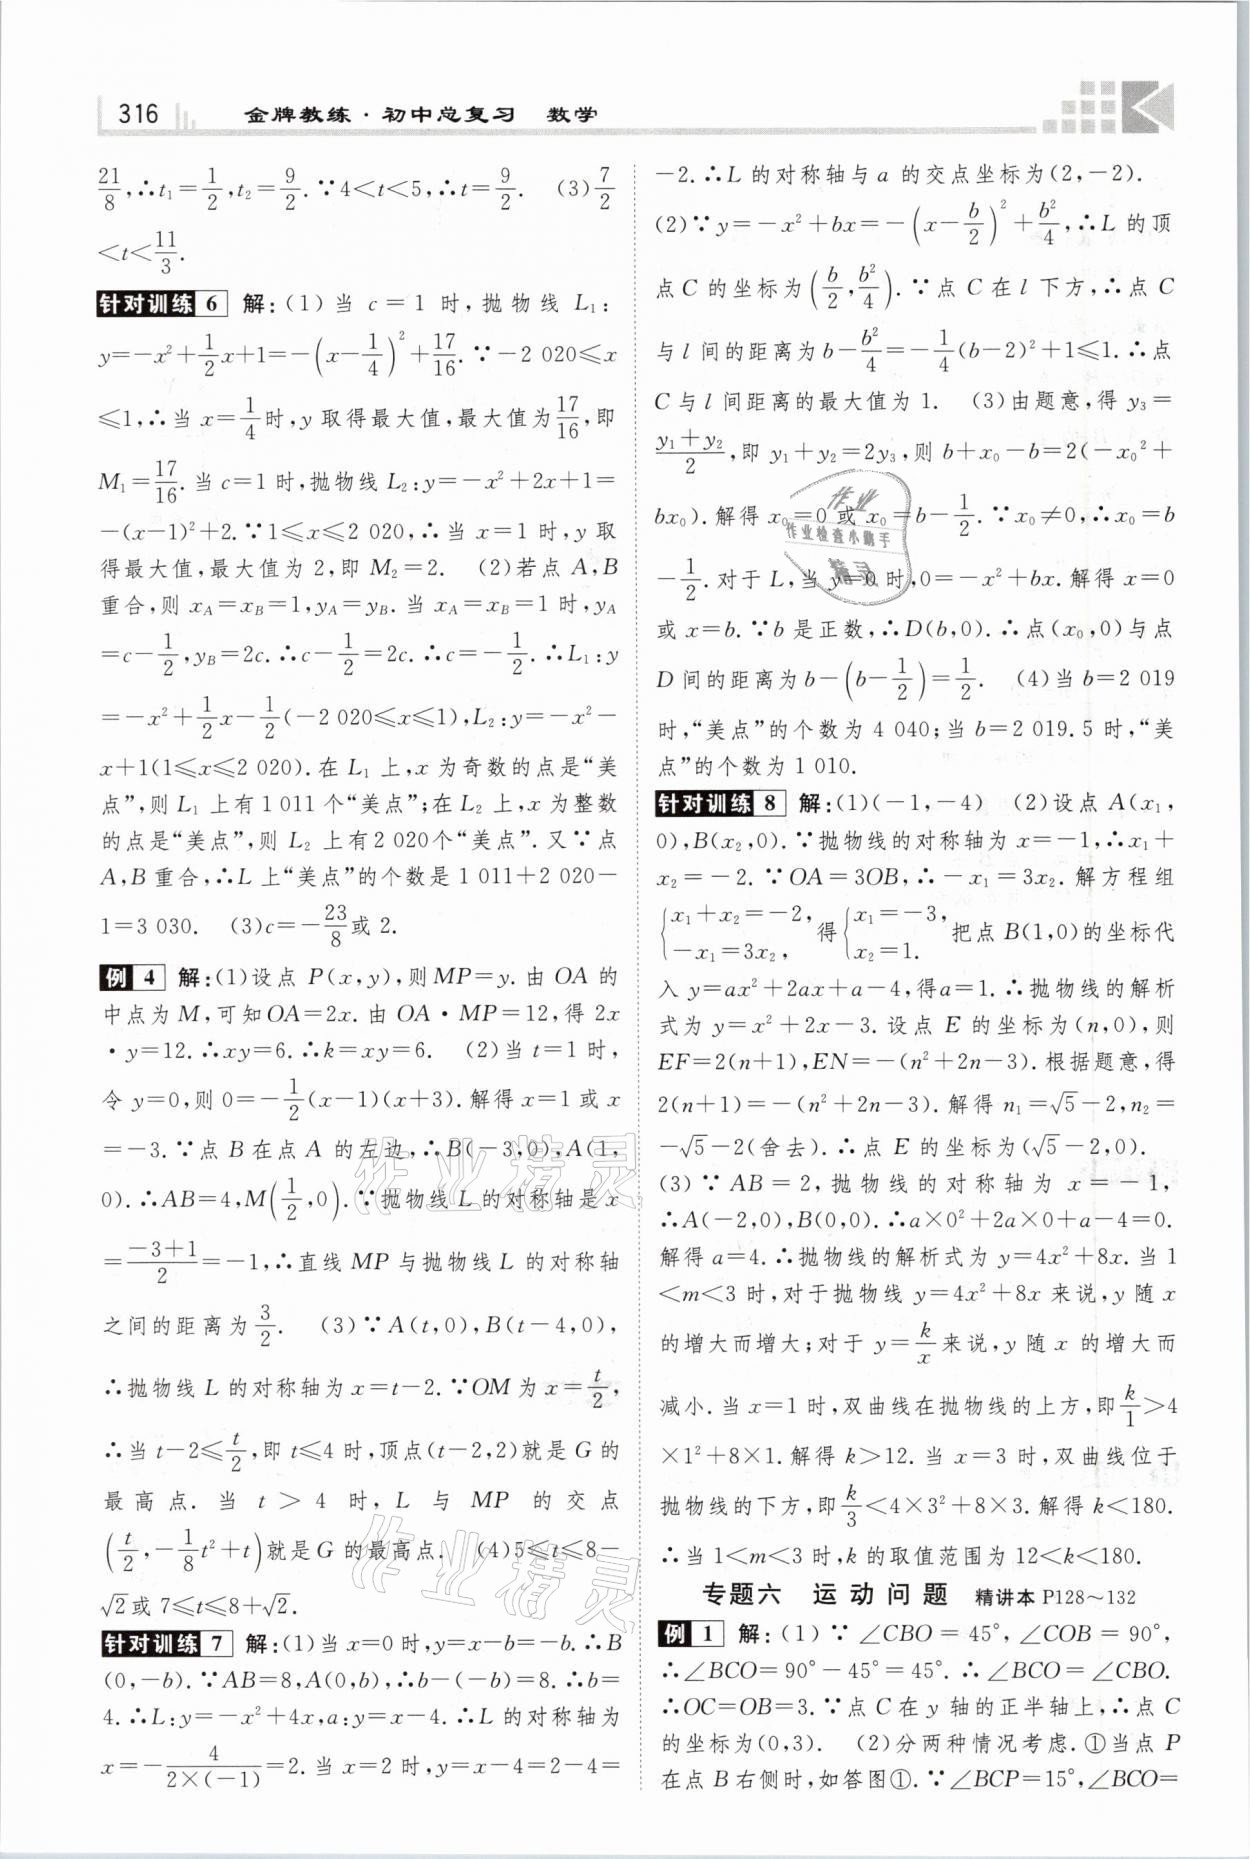 316 金牌教练·初中总复习 数学
21/8,∴t₁=1/2,t₂=9/2.∵4<t<5,∴t=9/2. (3)7/2
<t<11/3.
针对训练6 解:(1)当 c=1 时,抛物线 L₁:
y=-x²+1/2x+1=-(x-1/4)²+17/16.∵-2 020≤x
≤1,∴当 x=1/4时,y 取得最大值,最大值为17/16,即
M₁=17/16.当 c=1时,抛物线 L₂:y=-x²+2x+1=
-(x-1)²+2.∵1≤x≤2 020,∴当 x=1 时,y 取
得最大值,最大值为 2,即 M₂=2. (2)若点 A,B
重合,则 x_A=x_B=1,y_A=y_B.当 x_A=x_B=1 时,y_A
=c-1/2,y_B=2c.∴c-1/2=2c.∴c=-1/2.∴L₁:y
=-x²+1/2x-1/2(-2 020≤x≤1),L₂:y=-x²-
x+1(1≤x≤2 020).在 L₁ 上,x 为奇数的点是“美
点”,则 L₁ 上有1 011个“美点”;在 L₂ 上,x 为整数
的点是“美点”,则 L₂ 上有2 020个“美点”.又∵点
A,B重合,∴L 上“美点”的个数是 1 011+2 020-
1=3 030. (3)c=-23/8或 2.
例 4 解:(1)设点 P(x,y),则MP=y.由 OA 的
中点为 M,可知OA=2x.由 OA·MP=12,得 2x
·y=12.∴xy=6.∴k=xy=6. (2)当 t=1 时,
令 y=0,则 0=-1/2(x-1)(x+3).解得 x=1 或 x
=-3.∵点 B 在点 A 的左边,∴B(-3,0),A(1,
0).∴AB=4,M(1/2,0).∵抛物线 L 的对称轴是 x
=(-3+1)/2=-1,∴直线 MP 与抛物线 L 的对称轴
之间的距离为3/2. (3)∵A(t,0),B(t-4,0),
∴抛物线 L 的对称轴为 x=t-2.∵OM 为 x=t/2,
∴当 t-2≤t/2,即 t≤4 时,顶点(t-2,2)就是 G 的
最高点.当 t>4 时,L 与 MP 的交点
(t/2,-1/8t²+t)就是G 的最高点. (4)5≤t≤8-
√2或 7≤t≤8+√2.
针对训练7 解:(1)当 x=0 时,y=x-b=-b.∴B
(0,-b).∵AB=8,A(0,b),∴b-(-b)=8.∴b=
4.∴L:y=-x²+4x,a:y=x-4.∴L 的对称轴为
x=-4/(2×(-1))=2.当 x=2 时,y=x-4=2-4=
-2.∴L 的对称轴与 a 的交点坐标为(2,-2).
(2)∵y=-x²+bx=-(x-b/2)²+b²/4,∴L 的顶
点C 的坐标为(b/2,b²/4).∵点 C 在 l 下方,∴点 C
与 l 间的距离为b-b²/4=-1/4(b-2)²+1≤1.∴点
C 与 l 间距离的最大值为 1. (3)由题意,得 y₃=
(y₁+y₂)/2,即 y₁+y₂=2y₃,则 b+x₀-b=2(-x₀²+
bx₀).解得 x₀=0 或 x₀=b-1/2.∵x₀≠0,∴x₀=b
-1/2.对于 L,当 y=0 时,0=-x²+bx.解得 x=0
或 x=b.∵b 是正数,∴D(b,0).∴点(x₀,0)与点
D 间的距离为 b-(b-1/2)=1/2. (4)当 b=2 019
时,“美点”的个数为 4 040;当 b=2 019.5 时,“美
点”的个数为 1 010.
针对训练8 解:(1)(-1,-4) (2)设点 A(x₁,
0),B(x₂,0).∵抛物线的对称轴为 x=-1,∴x₁+
x₂=-2.∵OA=3OB,∴-x₁=3x₂.解方程组
{x₁+x₂=-2, -x₁=3x₂, 得{x₁=-3, x₂=1. 把点 B(1,0)的坐标代
入 y=ax²+2ax+a-4,得a=1.∴抛物线的解析
式为 y=x²+2x-3.设点 E 的坐标为(n,0),则
EF=2(n+1),EN=-(n²+2n-3).根据题意,得
2(n+1)=-(n²+2n-3).解得 n₁=√5-2,n₂=
-√5-2(舍去).∴点 E 的坐标为(√5-2,0).
(3)∵AB=2,抛物线的对称轴为 x=-1,
∴A(-2,0),B(0,0).∴a×0²+2a×0+a-4=0.
解得 a=4.∴抛物线的解析式为 y=4x²+8x.当 1
<m<3 时,对于抛物线 y=4x²+8x 来说,y 随 x
的增大而增大;对于 y=k/x来说,y 随 x 的增大而
减小.当 x=1 时,双曲线在抛物线的上方,即k/1>4
×1²+8×1.解得 k>12.当 x=3 时,双曲线位于
抛物线的下方,即k/3<4×3²+8×3.解得 k<180.
∴当 1<m<3 时,k 的取值范围为 12<k<180.
专题六 运动问题 精讲本 P128~132
例 1 解:(1)∵∠CBO=45°,∠COB=90°,
∴∠BCO=90°-45°=45°.∴∠BCO=∠CBO.
∴OC=OB=3.∵点 C 在 y 轴的正半轴上,∴点 C
的坐标为(0,3). (2)分两种情况考虑.①当点 P
在点 B 右侧时,如答图①.∵∠BCP=15°,∠BCO=
作业
作业检查小助手
精灵
作业精灵
作业精灵